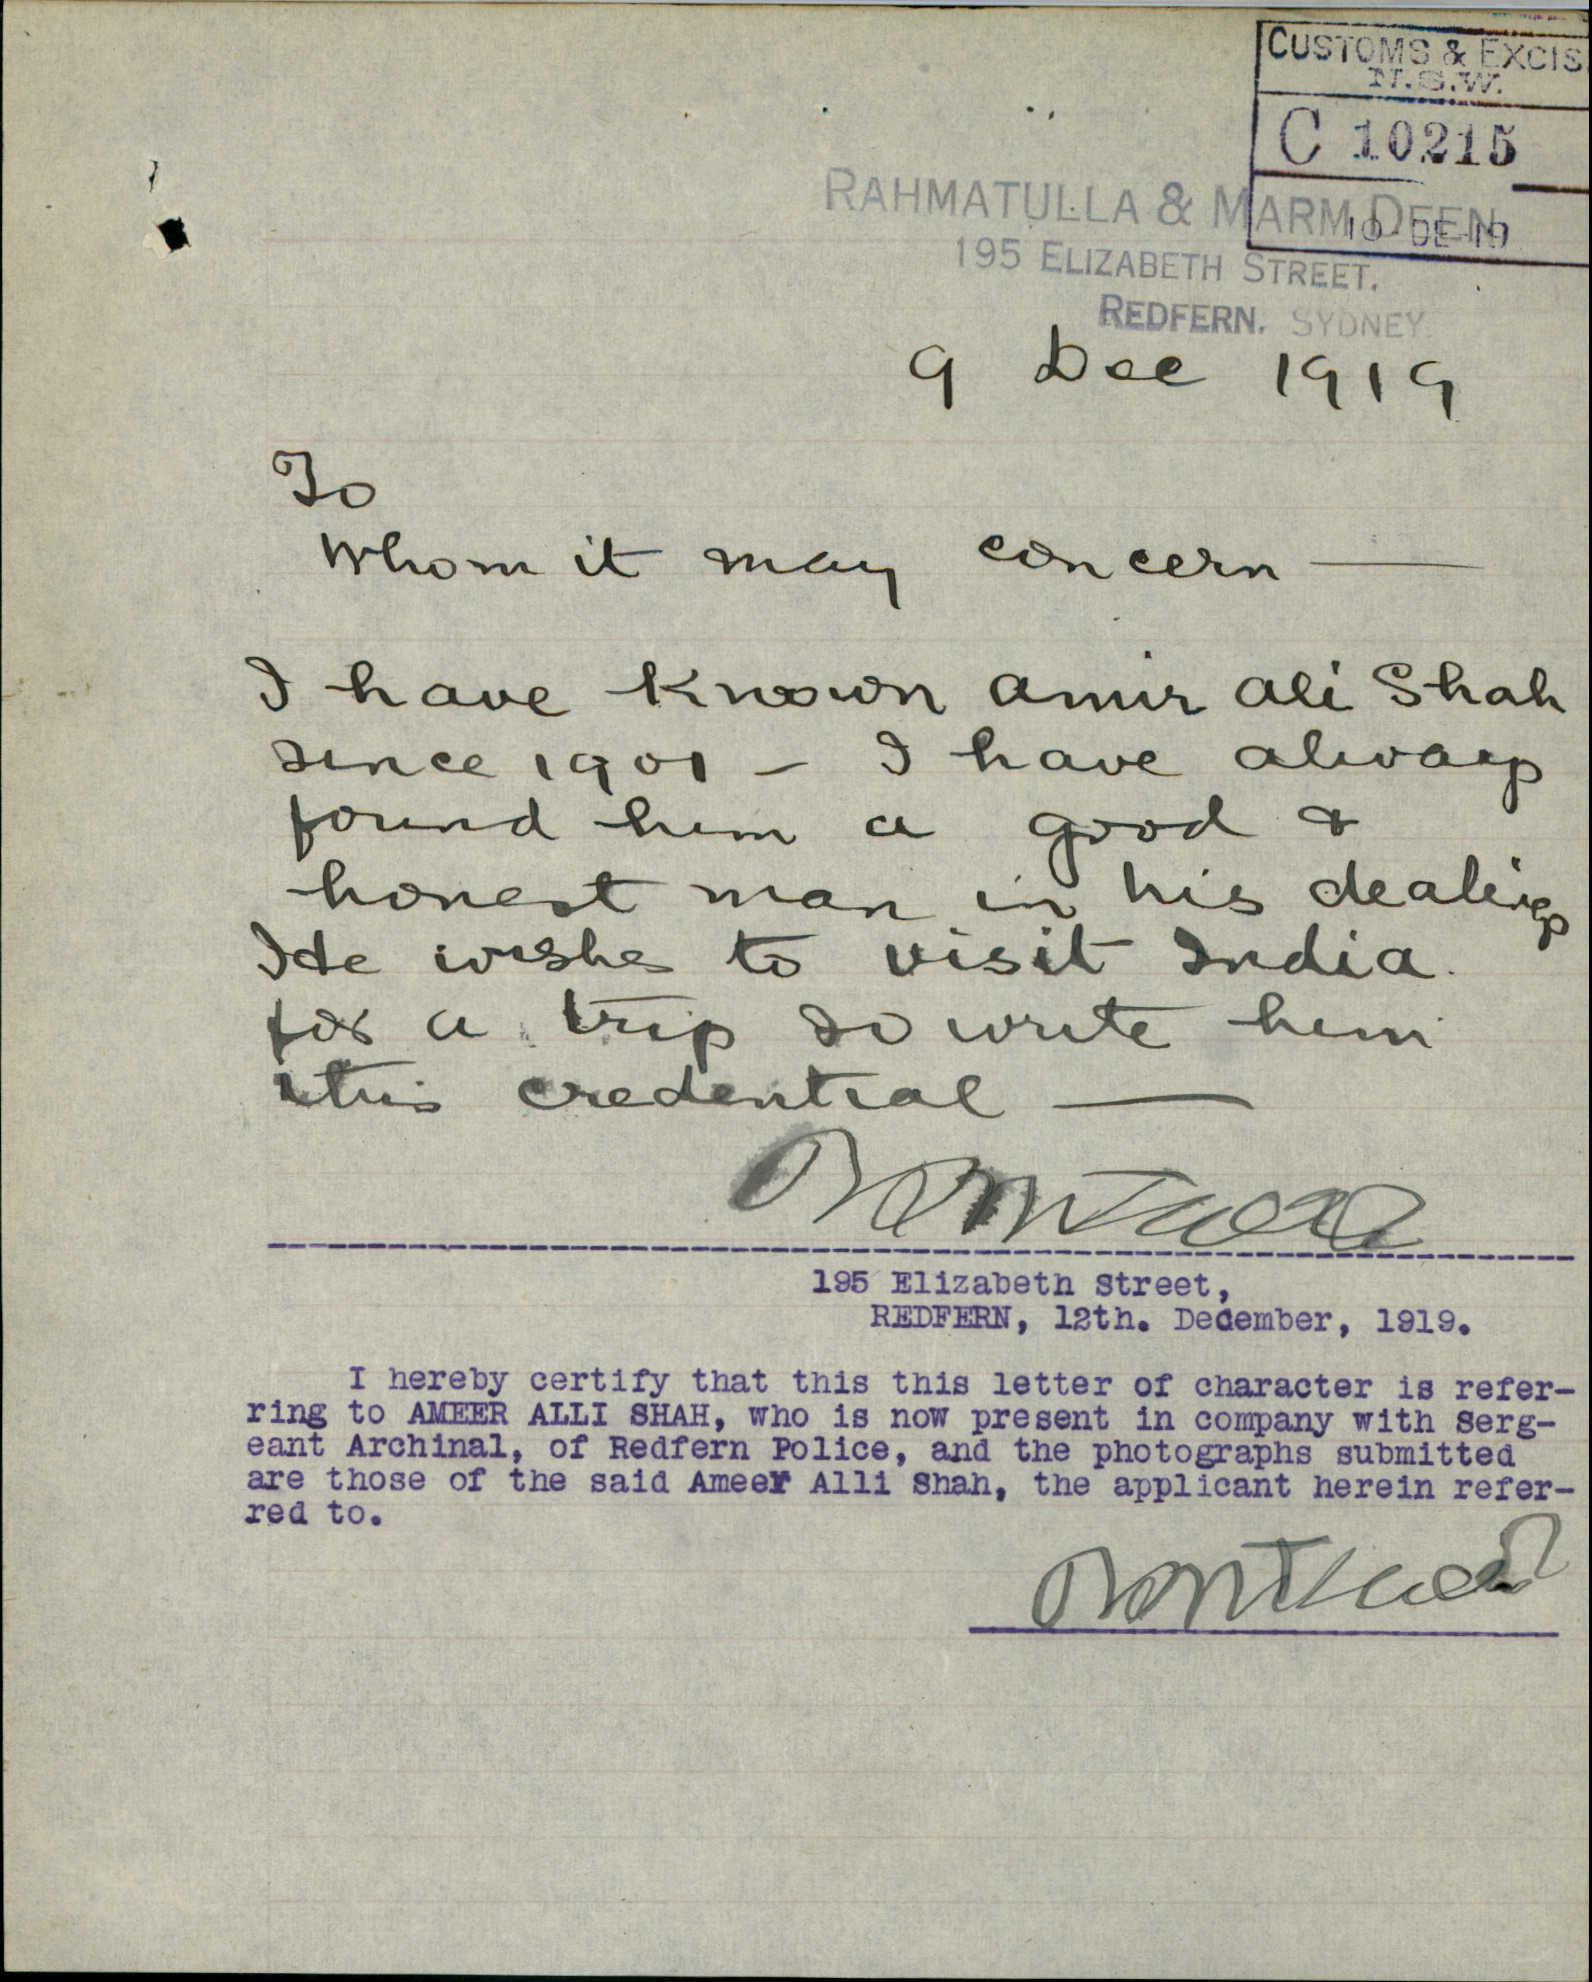 CUSTOMS & EXCIS
N.S.W.
C 10215
10 DE 19
RAHMATULLA & MARM DEEN
195 ELIZABETH STREET.
REDFERN. SYDNEY
9 Dec 1919
To
Whom it may concern —
I have known Amir Ali Shah
since 1901 – I have always
found him a good &
honest man in his dealings
He wishes to visit India.
for a trip so write him
this credential —
195 Elizabeth Street,
REDFERN, 12th. December, 1919.
I hereby certify that this this letter of character is refer-
ring to AMEER ALLI SHAH, who is now present in company with Serg-
eant Archinal, of Redfern Police, and the photographs submitted
are those of the said Ameer Alli Shah, the applicant herein refer-
red to.